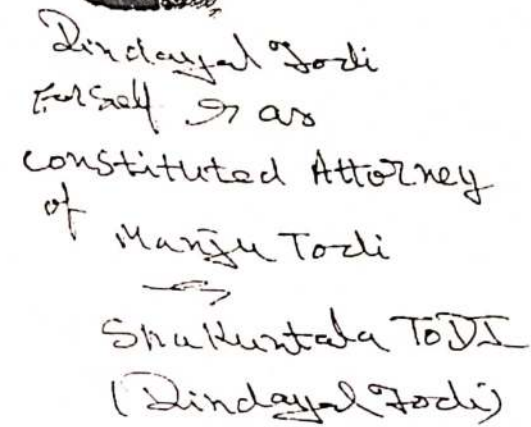 Dindayal Todi
For Self & as
constituted Attorney
of
Manju Todi
&
Shakuntala TODI
(Dindayal Todi)